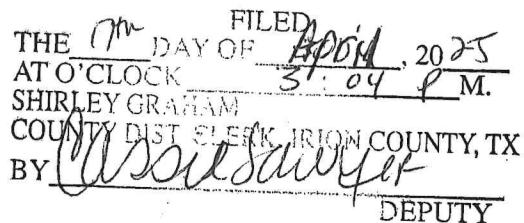 FILED
THE 7th DAY OF April, 2025
AT O'CLOCK 3:04 P M.
SHIRLEY GRAHAM
COUNTY DIST. CLERK, IRION COUNTY, TX
BY Cassie Sawyer
DEPUTY